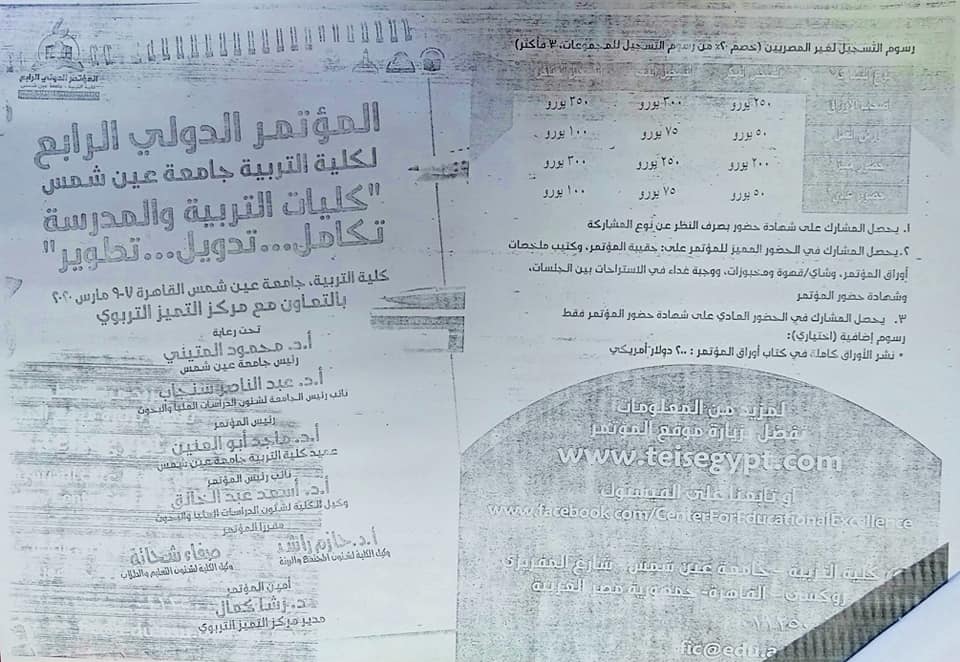 المؤتمر الدولي الرابع
المؤتمر الدولي الرابع
لكلية التربية جامعة عين شمس
"كليات التربية والمدرسة
تكامل...تدويل...تطوير"
كلية التربية، جامعة عين شمس القاهرة ٧-٩ مارس ٢٠٢٠
بالتعاون مع مركز التميز التربوي
تحت رعاية
أ.د. محمود المتيني
رئيس جامعة عين شمس
أ.د. عبد الناصر سنجاب
نائب رئيس الجامعة لشئون الدراسات العليا والبحوث
رئيس المؤتمر
أ.د. ماجد أبو العنين
عميد كلية التربية جامعة عين شمس
نائب رئيس المؤتمر
أ.د. أسعد عبد الخالق
وكيل الكلية لشئون الدراسات العليا والبحوث
مقررا المؤتمر
أ.د. حازم راشد
وكيل الكلية لشئون المجتمع والبيئة
صفاء شحاتة
وكيل الكلية لشئون التعليم والطلاب
أمين المؤتمر
د. رشا كمال
مدير مركز التميز التربوي
رسوم التسجيل لغير المصريين (خصم ٢٠٪ من رسوم التسجيل للمجموعات، ٣ فأكثر)
٢٥٠ يورو ٣٠٠ يورو ٣٥٠ يورو
٥٠ يورو ٧٥ يورو ١٠٠ يورو
٢٠٠ يورو ٢٥٠ يورو ٣٠٠ يورو
٥٠ يورو ٧٥ يورو ١٠٠ يورو
١. يحصل المشارك على شهادة حضور بصرف النظر عن نوع المشاركة
٢. يحصل المشارك في الحضور المميز للمؤتمر على: حقيبة المؤتمر، وكتيب ملخصات
أوراق المؤتمر، وشاي/قهوة ومخبوزات، ووجبة غداء في الاستراحات بين الجلسات،
وشهادة حضور المؤتمر
٣. يحصل المشارك في الحضور العادي على شهادة حضور المؤتمر فقط
رسوم إضافية (اختياري):
• نشر الأوراق كاملة في كتاب أوراق المؤتمر: ٢٠٠ دولار أمريكي
لمزيد من المعلومات
تفضل بزيارة موقع المؤتمر
www.teisegypt.com
أو تابعنا على الفيسبوك
www.facebook.com/CenterForEducationalExcellence
كلية التربية - جامعة عين شمس - شارع المقريزي
روكسي - القاهرة - جمهورية مصر العربية
fic@edu.a